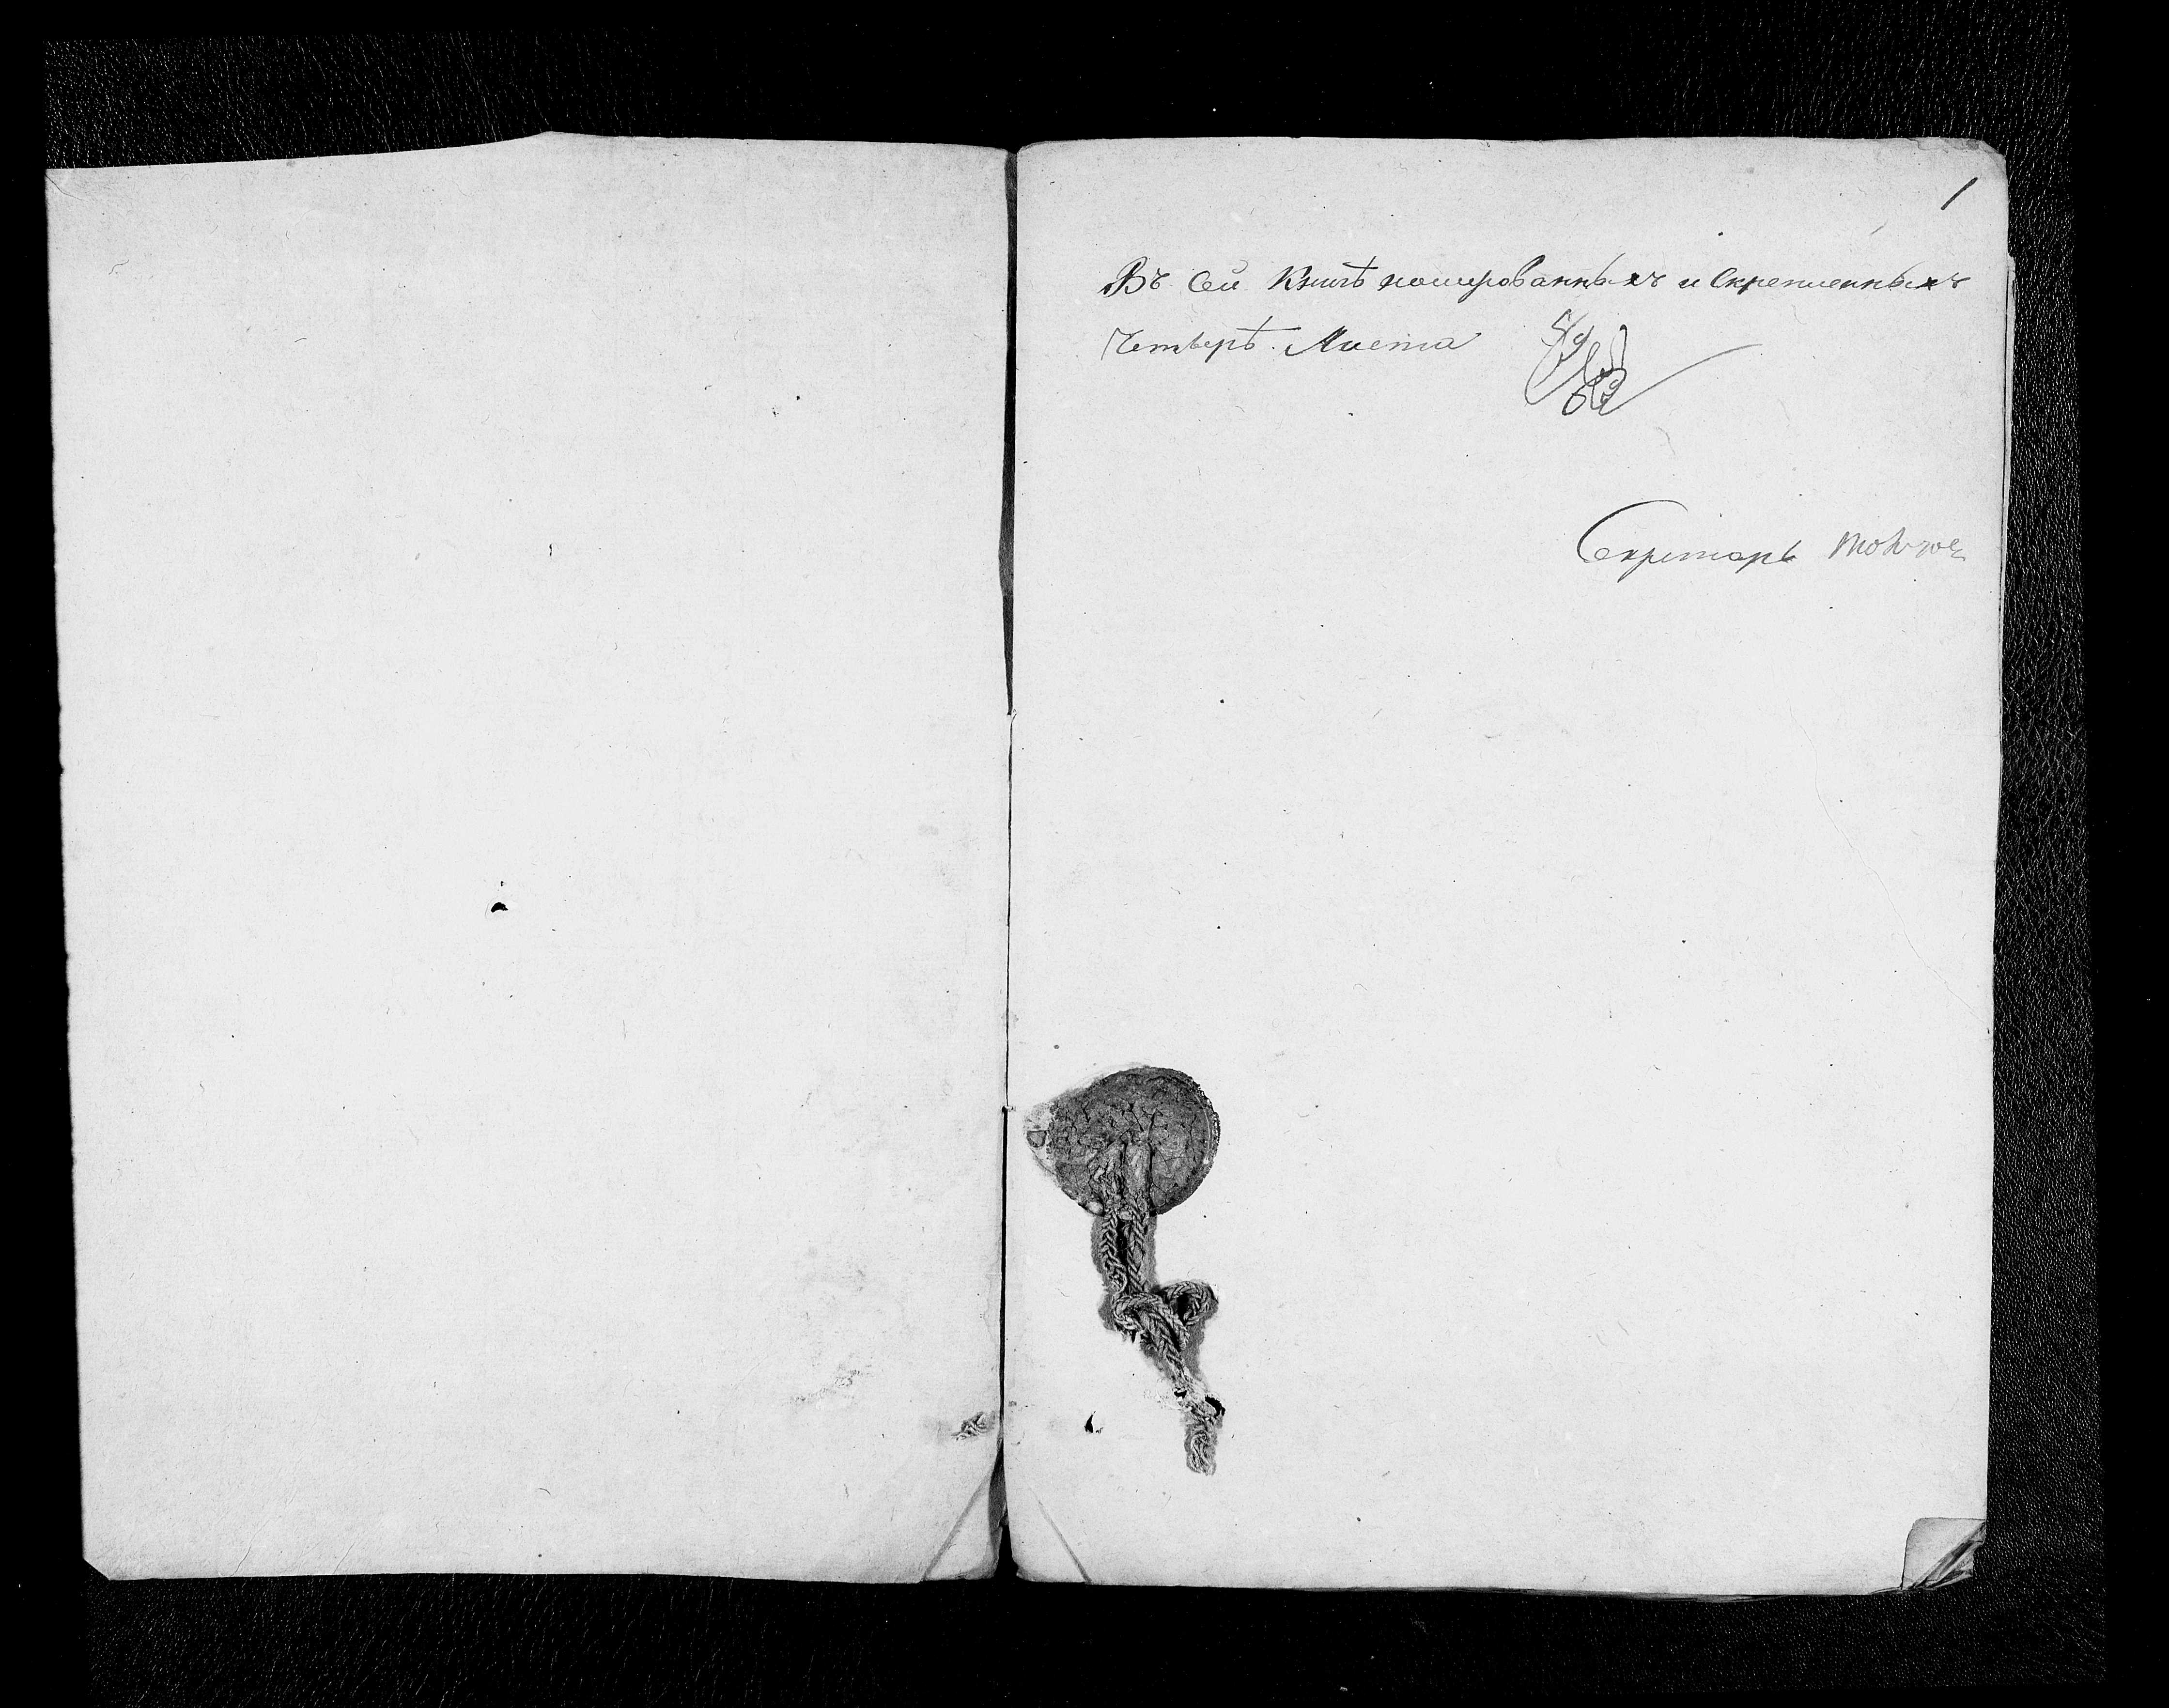 1
Въ сей Книгѣ номерованныхъ и скрепленныхъ
Четверѣ Листа
Секретарь